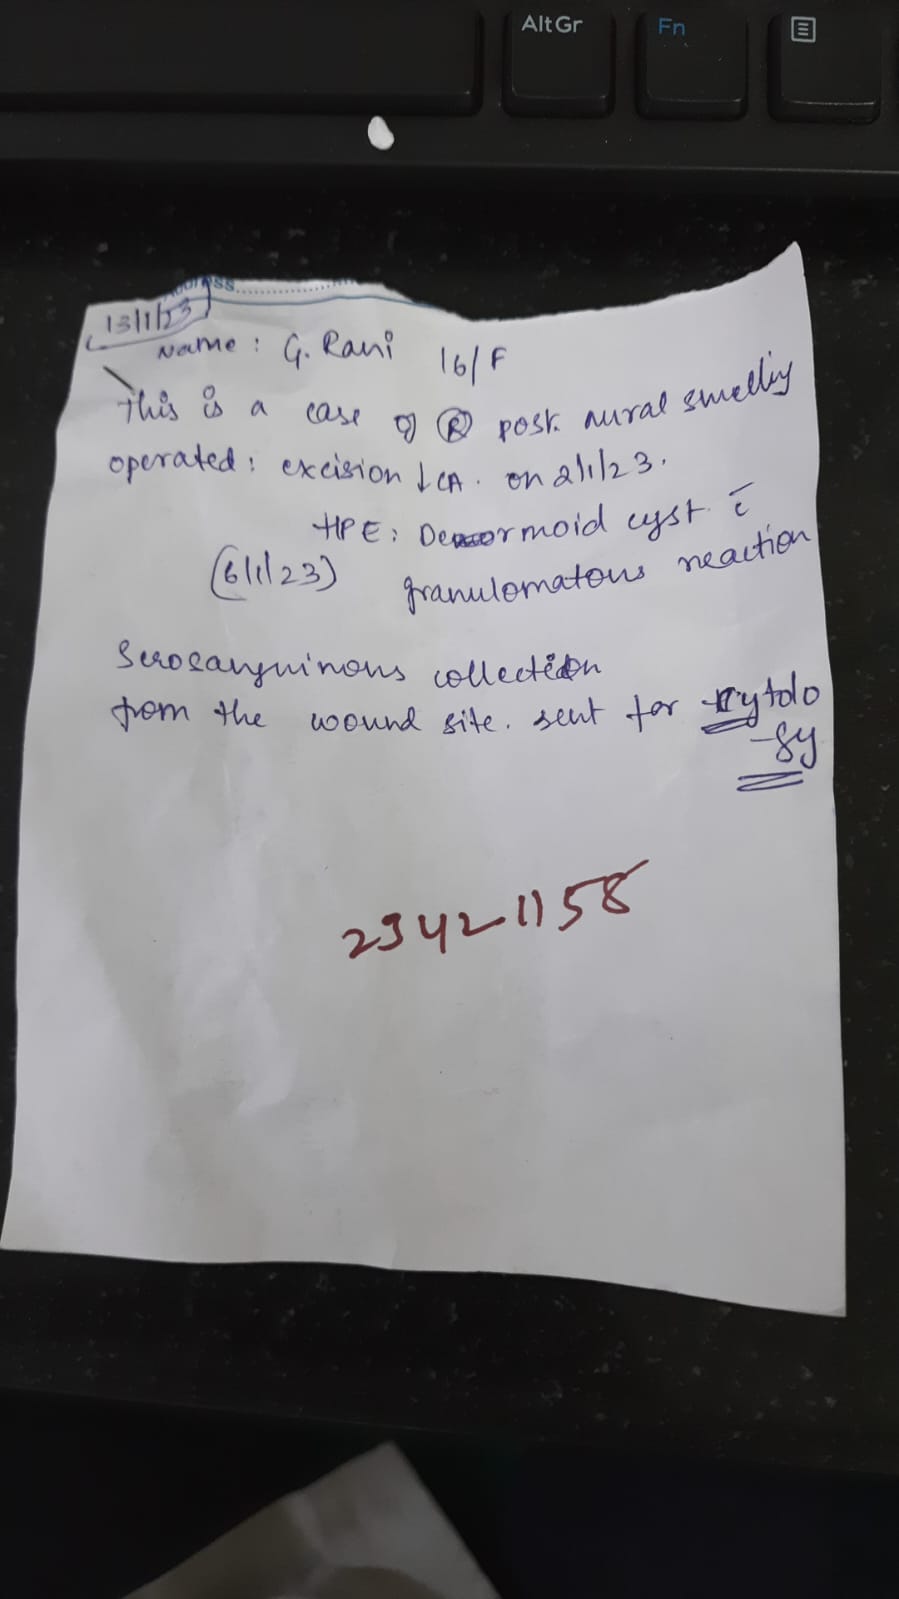 AltGr
Fn
Address..............
13/1/23
Name : G. Rani 16/F
This is a case of Ⓡ post. aural swelling
operated: excision ↓ LA. on 2/1/23.
HPE: Dermoid cyst c̄
(6/1/23) granulomatous reaction
Serosanguinous collection
from the wound site. sent for cytolo
-gy
23421158